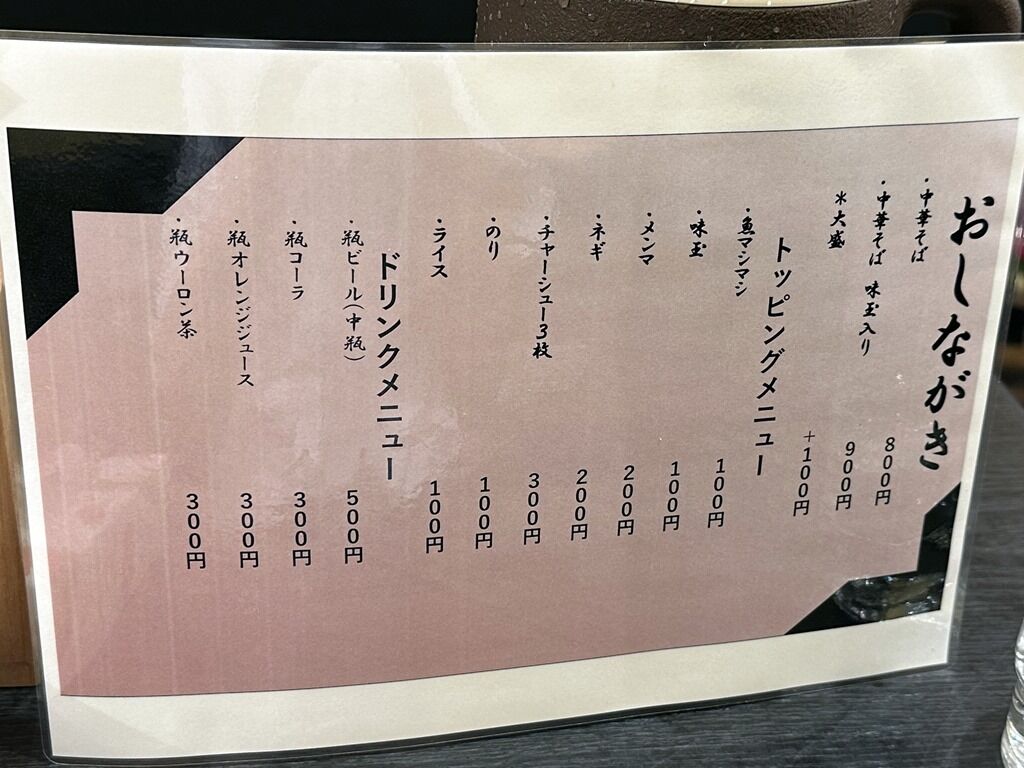 おしながき
・中華そば 800円
・中華そば 味玉入り 900円
*大盛 +100円
トッピングメニュー
・魚マシマシ 100円
・味玉 100円
・メンマ 200円
・ネギ 200円
・チャーシュー3枚 300円
・のり 100円
・ライス 100円
ドリンクメニュー
・瓶ビール(中瓶) 500円
・瓶コーラ 300円
・瓶オレンジジュース 300円
・瓶ウーロン茶 300円